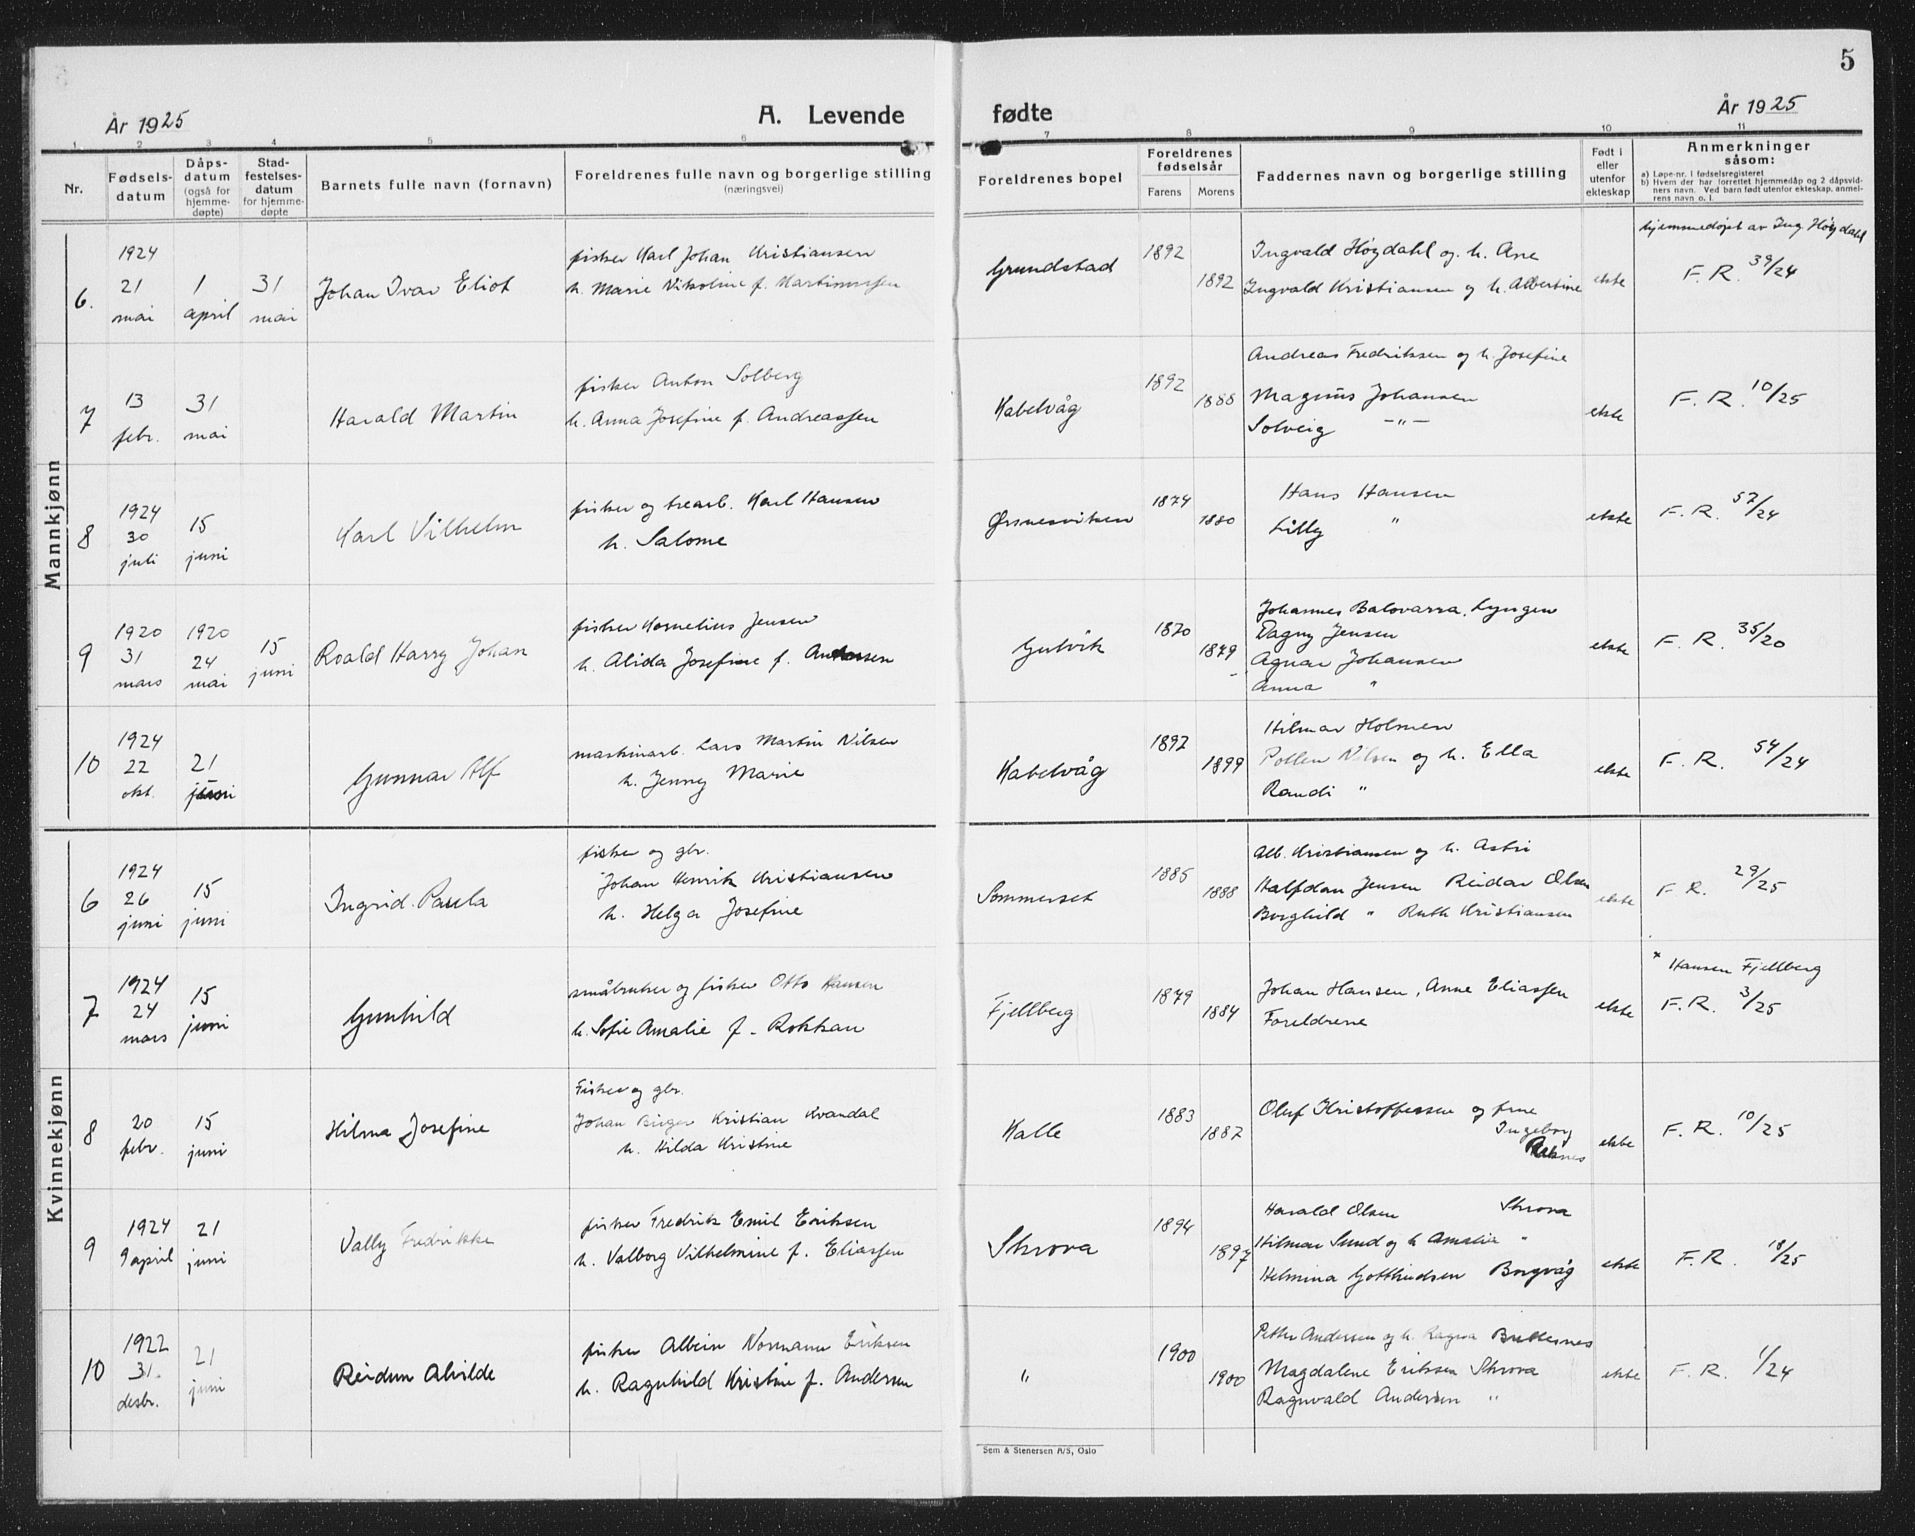 5
År 1925
A. Levende
fødte
År 1925
1. 2 3 4 5 6 7 8 9 10 11
Nr.
Fødsels-
datum
Dåps-
datum
(også for
hjemme-
døpte)
Stad-
festelses-
datum
for hjemme-
døpte
Barnets fulle navn (fornavn)
Foreldrenes fulle navn og borgerlige stilling
(næringsvei)
Foreldrenes bopel
Foreldrenes
fødselsår
Farens Morens
Faddernes navn og borgerlige stilling
Født i
eller
utenfor
ekteskap
Anmerkninger
såsom:
a) Løpe-nr. i fødselsregisteret
b) Hvem der har forrettet hjemmedåp og 2 dåpsvid-
ners navn. Ved barn født utenfor ekteskap, anmel-
rens navn o. l.
Mannkjønn
6.
1924
21
mai
1
april
31
mai
Johan Ivar Eliot
fisker Karl Johan Kristiansen
h. Marie Nikoline f. Martinussen
Grundstad
1892
1892
Ingvald Høydahl og h. Ane
Ingvald Kristiansen og h. Albertine
ekte
hjemmedøpt av Ing. Høydahl
F. R. 39/24
7
13
febr.
31
mai
Harald Martin
fisker Anton Solberg
h. Anna Josefine f. Andreassen
Kabelvåg
1892
1888
Andreas Fredriksen og h. Josefine
Magnus Johansen
Solveig -"-
ekte
F. R. 10/25
8
1924
30
juli
15
juni
Karl Vilhelm
fisker og trearb. Karl Hansen
h. Salome
Ørsnesviken
1874
1880
Hans Hansen
Lilly "
ekte
F. R. 57/24
9
1920
31
mars
1920
24
mai
15
juni
Roald Harry Johan
fisker Kornelius Jensen
h. Alida Josefine f.
Gulvik
1870
1879
Johannes Balovarra, Lyngen
Dagny Jensen
Agnar Johansen
Anna "
ekte
F. R. 35/20
10
1924
22
okt.
21
juni
Gunnar Alf
maskinarb. Lars Martin Nilsen
h. Jenny Marie
Kabelvåg
1897
1899
Hilmar Holmen
Pollen Nilsen og h. Ella
Randi "
ekte
F. R. 54/24
Kvinnekjønn
6
1924
26
juni
15
juni
Ingrid Paula
fisker og gbr.
Johan Henrik Kristiansen
h. Helga Josefine
Sommerset
1885
1888
Alb. Kristiansen og h. Astri
Halfdan Jensen Reidar Olsen
Borghild " Ruth Kristiansen
ekte
F. R. 29/25
7
1924
24
mars
15
juni
Gunhild
småbruker og fisker Otto Hansen
h. Sofie Amalie f. Rokkan
Fjellberg
1879
1884
Johan Hansen, Anne Eliassen
Foreldrene
ekte
* Hansen Fjellberg
F. R. 3/25
8
20
febr.
15
juni
Hilma Josefine
Fisker og gbr.
Johan Birger Kristian Kvandal
h. Hilda Kristine
Kalle
1883
1887
Oluf Kristoffersen og frue
Ingeborg
ekte
F. R. 10/25
9
1924
9 april
21
juni
Vally Fredrikke
fisker Fredrik Emil Eriksen
h. Valborg Vilhelmine f. Eliassen
Skrova
1894
1897
Harald Olsen Skrova
Hilmar Sund og h Amalia "
Helmina Gotthudsen Borgvåg
ekte
F. R. 18/25
10
1922
31.
desbr.
21
juni
Reidun Alvilde
fisker Albein Normann Eriksen
h. Ragnhild Kristine f. Andersen
"
1900
1900
Petter Andersen og h. Ragna Buttesnes
Magdalene Eriksen Skrova
Ragnvald Andersen "
ekte
F. R. 1/24
Sem & Stenersen A/S, Oslo